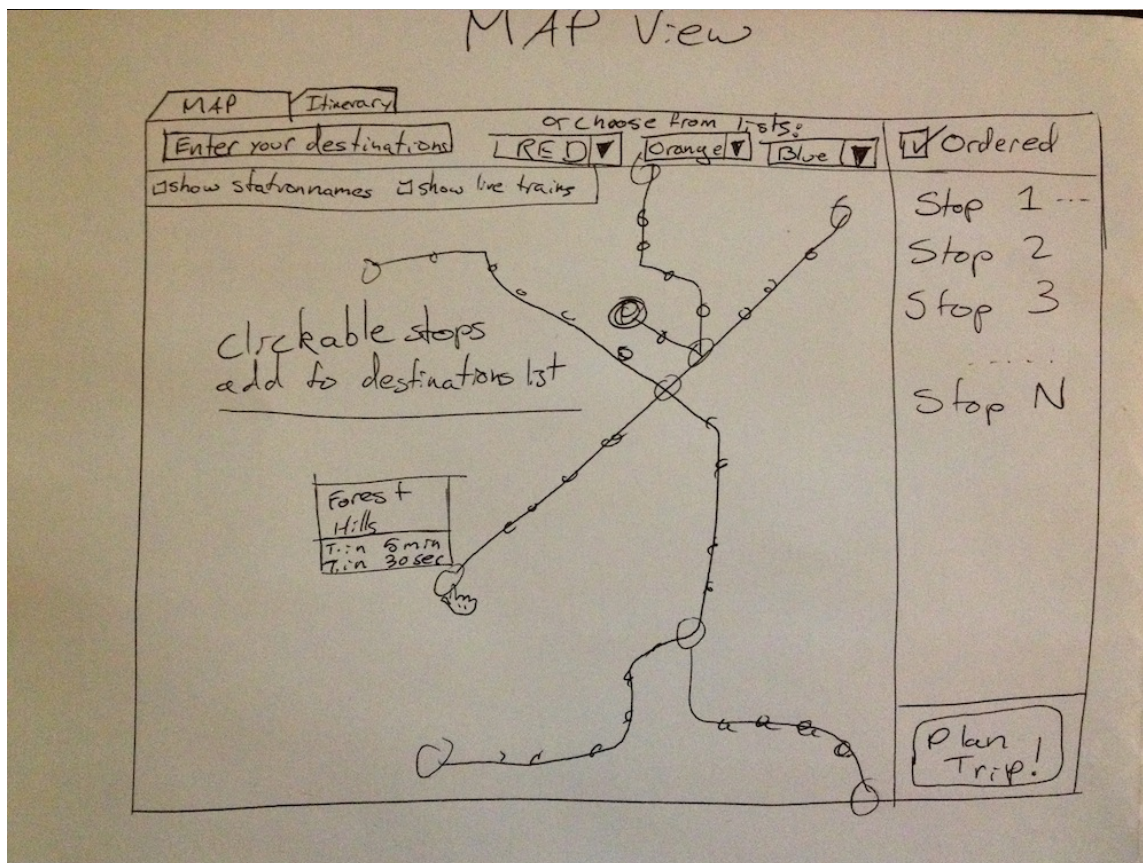 MAP View
MAP
Itinerary
or choose from lists:
Enter your destinations
RED
Orange
Blue
Ordered
show stationnames
show live trains
Stop 1 ---
Stop 2
Stop 3
......
Stop N
clickable stops
add to destinations list
Forest
Hills
T. in 5 min
T. in 30 sec
Plan
Trip!